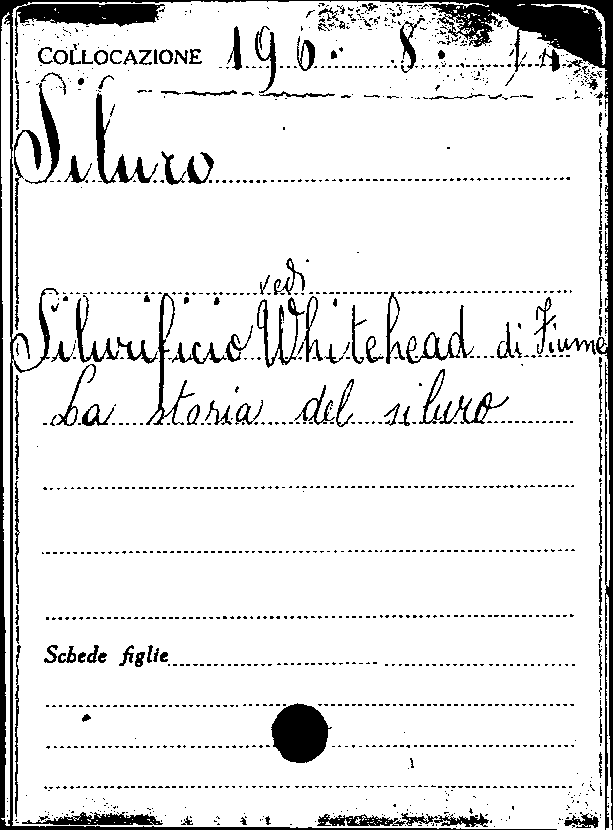 COLLOCAZIONE 196. 8.
Siluro
vedi
Silurificio Whitehead di Fiume
La storia del siluro
Schede figlie